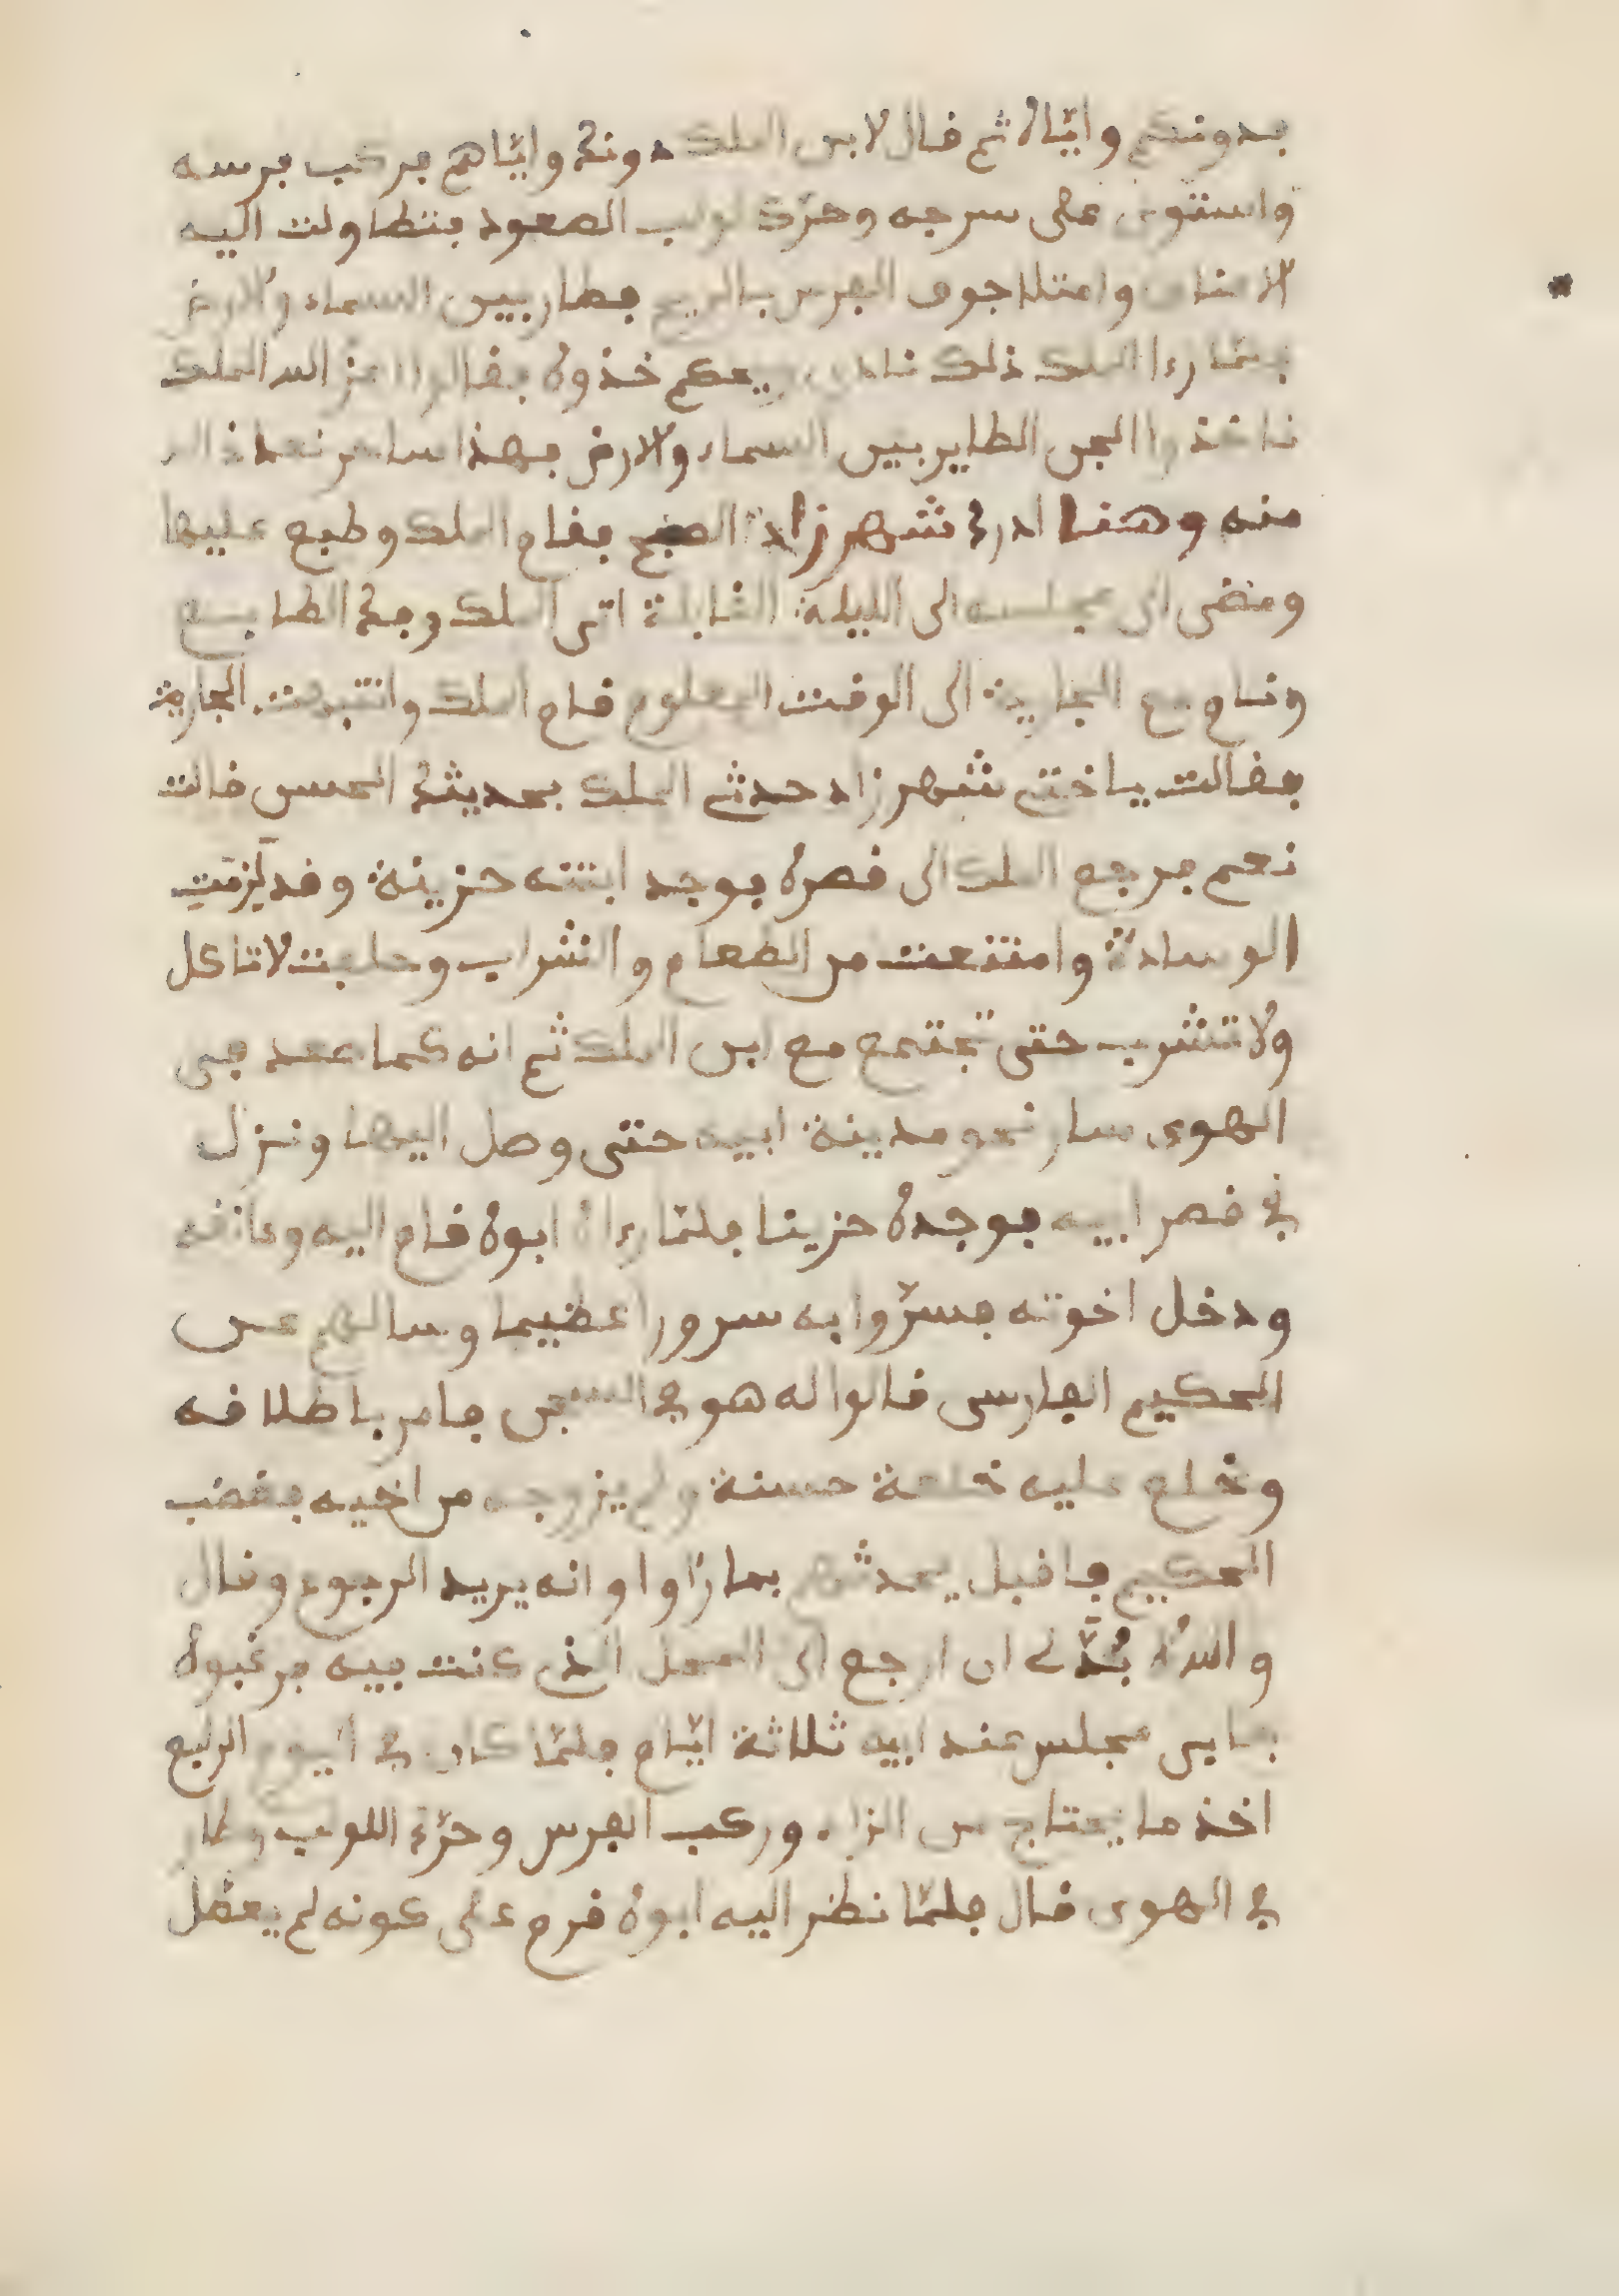 فدونكم واياه ثم قال لابن الملك دونك واياهم فركب فرسه
واستوى على سرجه وحرك لولب الصعود فتطاولت اليه
الاعناق وامتلا جوف الفرس بالريح فطار بين السماء والارض
فلما رءا الملك ذلك نادى ويحكم خذوه فقالوا اعز الله الملك
ناخذوا الجن الطاير بين السماء والارض فهذا ساحر
منه وهنا ادرك شهرزاد الصبح فقام الملك وطبع عليها
ومضى الى مجلسه الى الليلة القابلة اتى الملك وفك الطابع
ونام مع الجارية الى الوقت المعلوم قام الملك وانتبهت الجارية
فقالت ياختي شهرزاد حدثي الملك بحديثك الحسن قالت
نعم فرجع الملك الى قصره فوجد ابنته حزينة وقد لزمت
الوسادة وامتنعت من الطعام والشراب وحلفت لا تاكل
ولا تشرب حتى تجتمع مع ابن الملك ثم انه كما صعد في
الهوى سار نحو مدينة ابيه حتى وصل اليها ونزل
في قصر ابيه فوجده حزينا فلما رءاه ابوه قام اليه وعانقه
ودخل اخوته فسروا به سرورا عظيما وسالهم عن
الحكيم الفارسى قالوا له هو في السجن فامر باطلاقه
وخلع عليه خلعة حسنة ولم يزوجه من اخيه فغضب
الحكيم فاقبل يحدثهم بما راوا وانه يريد الرجوع وقال
والله لا بد لي ان ارجع الى المحل الذي كنت فيه فرغبوه
فابى فجلس عند ابيه ثلاثة ايام فلما كان في اليوم الرابع
اخذ ما يحتاج من الزاد وركب الفرس وحرك اللولب وطار
في الهوى قال فلما نظر اليه ابوه فرح على كونه لم يعقل